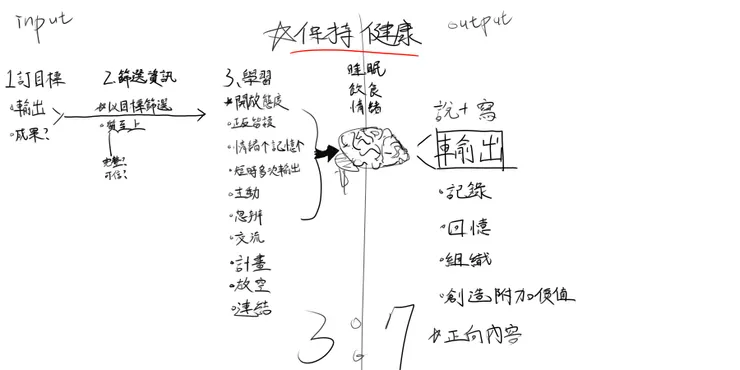 input
☆保持健康
output
睡眠
飲食
情緒
1.訂目標
•輸出
成果?
2.篩選資訊
☆以目標篩選
•質至上
完整?
可信?
3.學習
★開放態度
•正反皆讀
•情緒↑記憶↑
•短時多次輸出
•主動
•思辨
•交流
•計畫
•放空
•連結
說+寫
輸出
•記錄
•回憶
•組織
•創造附加價值
☆正向內容
3:7